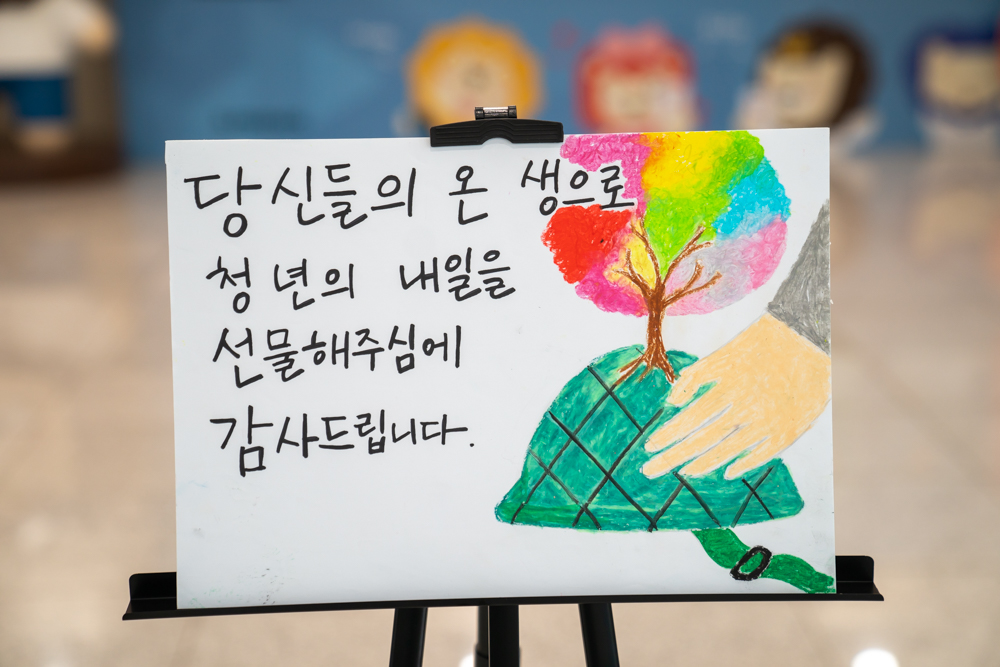 당신들의 온 생으로
청년의 내일을
선물해주심에
감사드립니다.